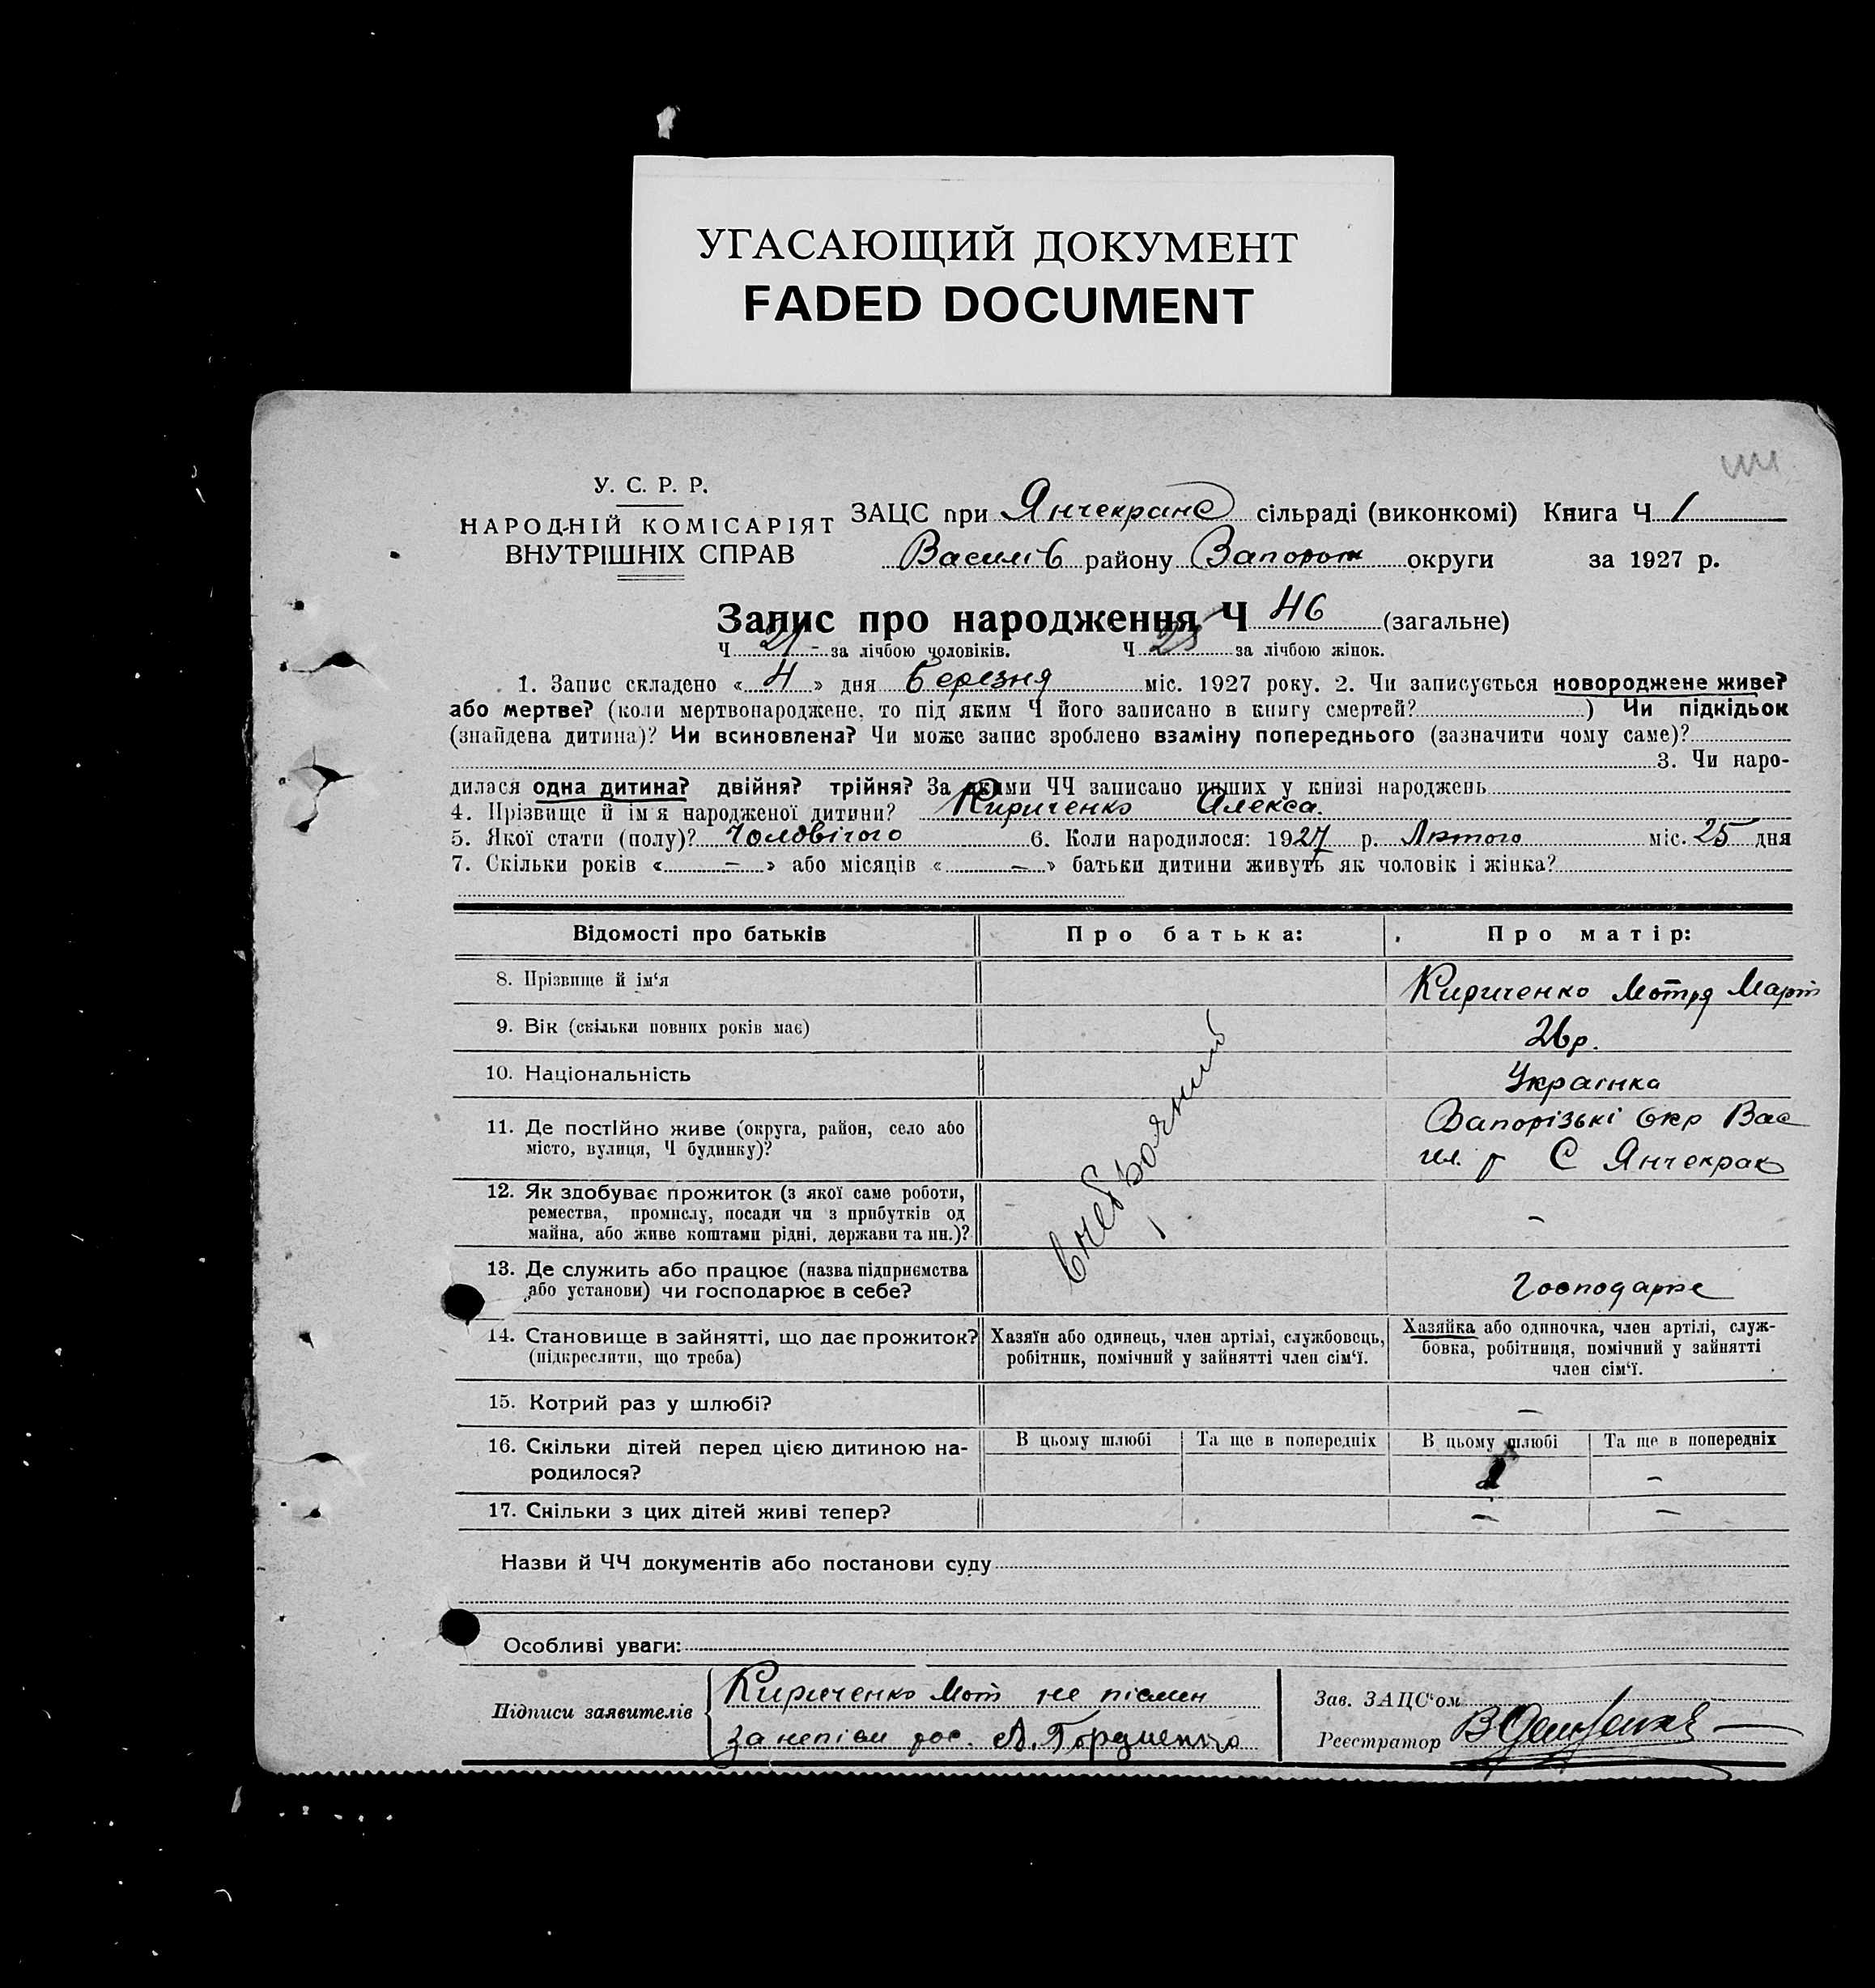 УГАСАЮЩИЙ ДОКУМЕНТ
FADED DOCUMENT
У. С. Р. Р.
НАРОДНІЙ КОМІСАРІЯТ
ВНУТРІШНІХ СПРАВ
ЗАЦС при Янчекранс сільраді (виконкомі) Книга Ч 1
Василів району Запорож округи за 1927 р.
Запис про народження Ч 46 (загальне)
Ч 21 - за лічбою чоловіків. Ч 25 за лічбою жінок.
1. Запис складено « 4 » дня березня міс. 1927 року. 2. Чи записується новороджене живе?
або мертве? (коли мертвонароджене, то під яким Ч його записано в книгу смертей? ) Чи підкідьок
(знайдена дитина)? Чи всиновлена? Чи може запис зроблено взаміну попереднього (зазначити чому саме)?
3. Чи наро-
дилася одна дитина? двійня? трійня? За якими ЧЧ записано инших у книзі народжень
4. Прізвище й ім'я народженої дитини? Кириченко Алекса.
5. Якої стати (полу)? чоловічого 6. Коли народилося: 1927 р. Лютого міс. 25 дня
7. Скільки років « — » або місяців « — » батьки дитини живуть як чоловік і жінка?
Відомості про батьків Про батька: Про матір:
8. Прізвище й ім'я Кириченко Мотря Март
9. Вік (скільки повних років має) 26 р.
10. Національність Українка
11. Де постійно живе (округа, район, село або Запорізькі окр Вас
місто, вулиця, Ч будинку)? р С Янчекрак
внебрачний
12. Як здобуває прожиток (з якої саме роботи,
ремества, промислу, посади чи з прибутків од —
майна, або живе коштами рідні, держави та ин.)?
13. Де служить або працює (назва підприємства
або установи) чи господарює в себе? Господарює
14. Становище в зайнятті, що дає прожиток? Хазяїн або одинець, член артілі, службовець, Хазяйка або одиночка, член артілі, служ-
(підкреслити, що треба) робітник, помічний у зайнятті член сім'ї. бовка, робітниця, помічний у зайнятті
член сім'ї.
15. Котрий раз у шлюбі? —
16. Скільки дітей перед цією дитиною на- В цьому шлюбі Та ще в попередніх В цьому шлюбі Та ще в попередніх
родилося? —
17. Скільки з цих дітей живі тепер? — —
Назви й ЧЧ документів або постанови суду
Особливі уваги:
Підписи заявителів Кириченко Мот не писмен
за неписм рос. А. Гордиенко
Зав. ЗАЦС'ом
Реєстратор